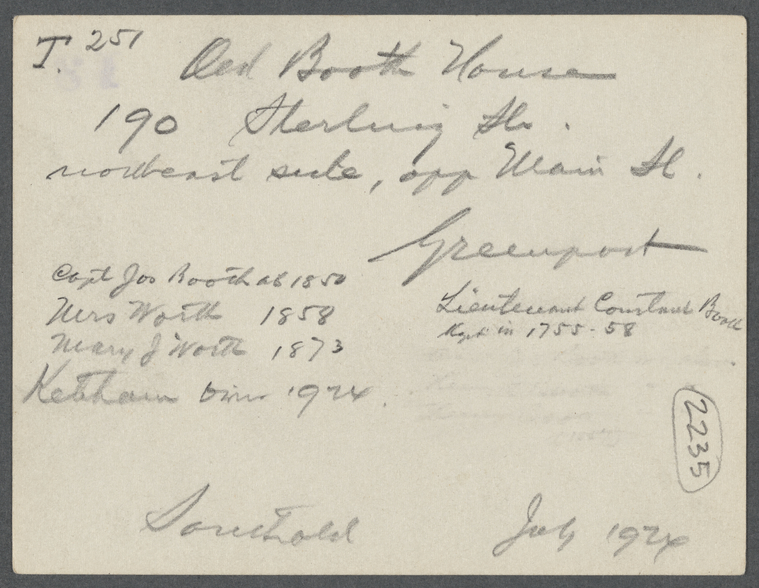 T. 251
Old Booth House
190 Sterling St.
northeast side, opp Main St.
Greenport
Capt Jos Booth ab 1850
Mrs Worth 1858
Mary J Worth 1873
Ketcham Bros 1924.
Lieutenant Constant Booth
Kept in 1755-58
2235
Southold
July 1924